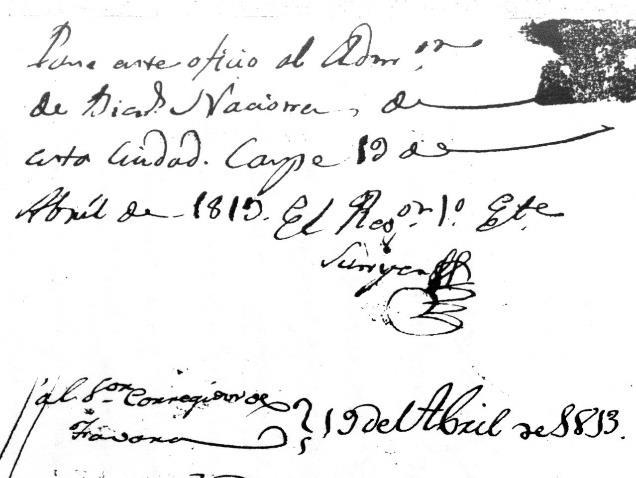 Pase este oficio al Admr.on
de Bien.s Naciona, de
esta Ciudad. Caspe 19 de
Abril de 1813. El Reg.or 1.º Ete
al S.or Corregidor de
Favara 19 del Abril de 1813.